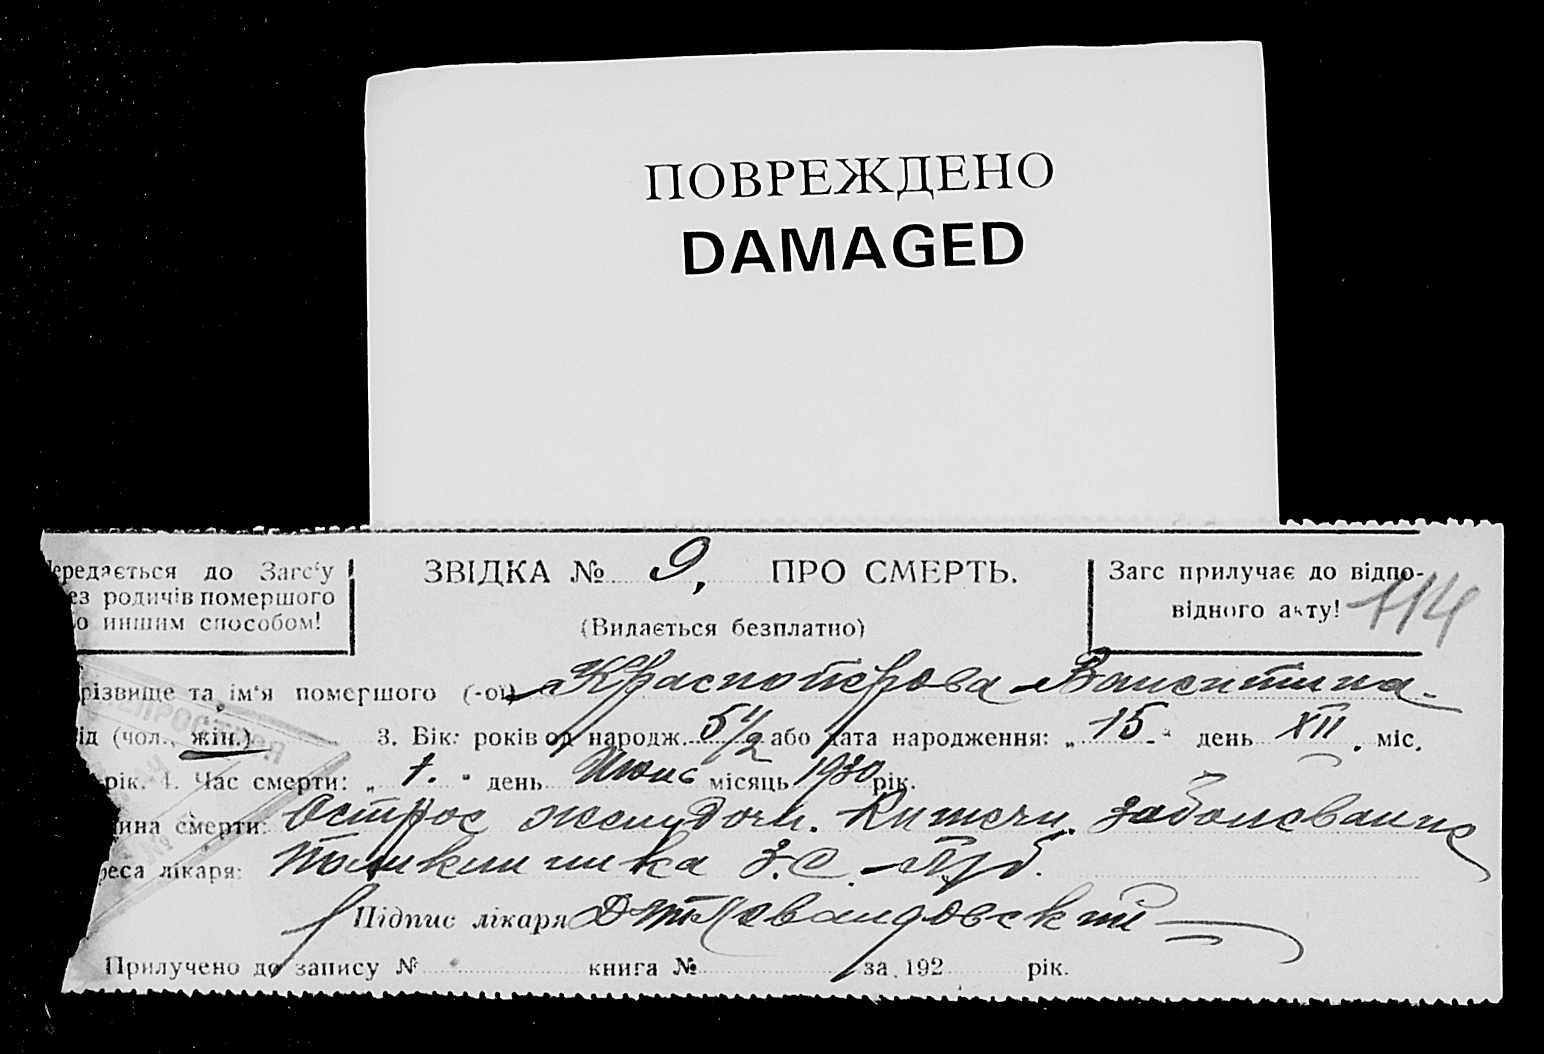 ПОВРЕЖДЕНО
DAMAGED
ередається до Загс‘у
ез родичів помершого
о иншим способом!
ЗВІДКА № 9, ПРО СМЕРТЬ.
(Видається безплатно)
Загс прилучає до відпо-
відного акту! 114
різвище та ім‘я помершого (-ої) Краснопёрова Валентина
ід (чол., жін.) 3. Вік: років од народж. 5 1/2 або дата народження: „ 15 " день XII. міс.
рік. 4. Час смерти: „ 1. " день Июнь місяць 1930 рік.
ина смерти: Острое желудочн. Кишечн. заболевание
реса лікаря: Поликлиника З.С.
Підпис лікаря
Прилучено до запису № книга № за 192 рік.